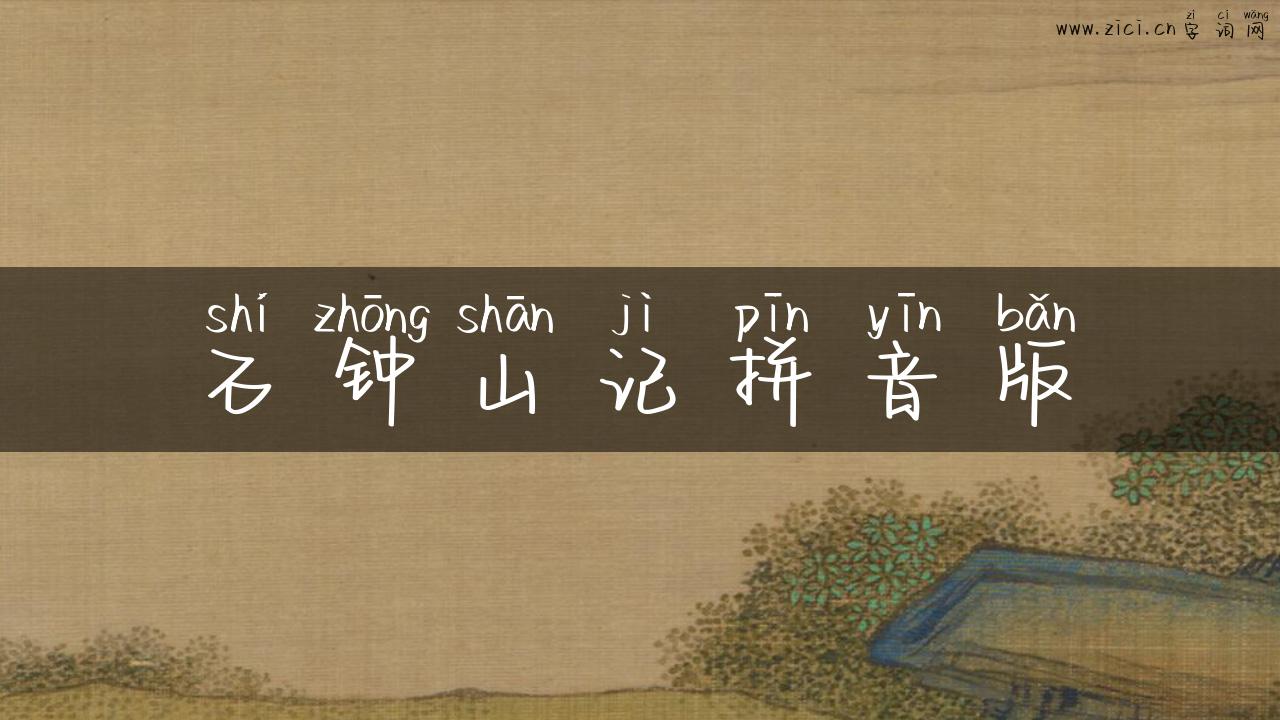 zì cí wǎng
www.zici.cn 字词网
shí zhōng shān jì pīn yīn bǎn
石钟山记拼音版